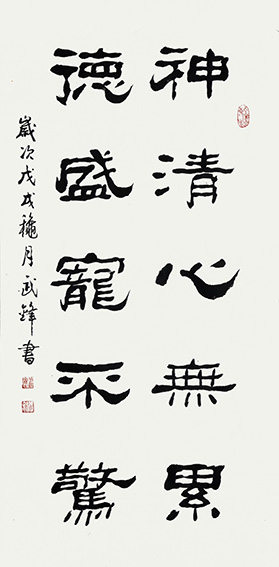 神清心無累
德盛寵不驚
歲次戊戌穐月武鋒書